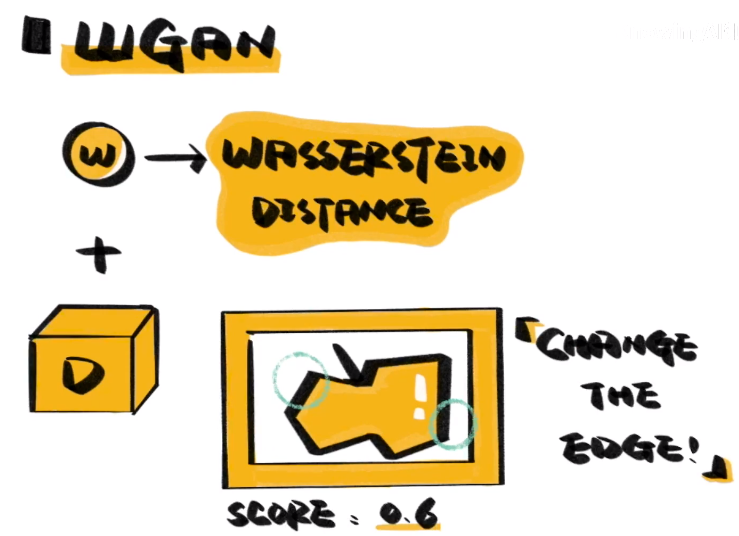 WGAN
W → WASSERSTEIN
DISTANCE
+
D
「CHANGE
THE
EDGE!」
SCORE: 0.6